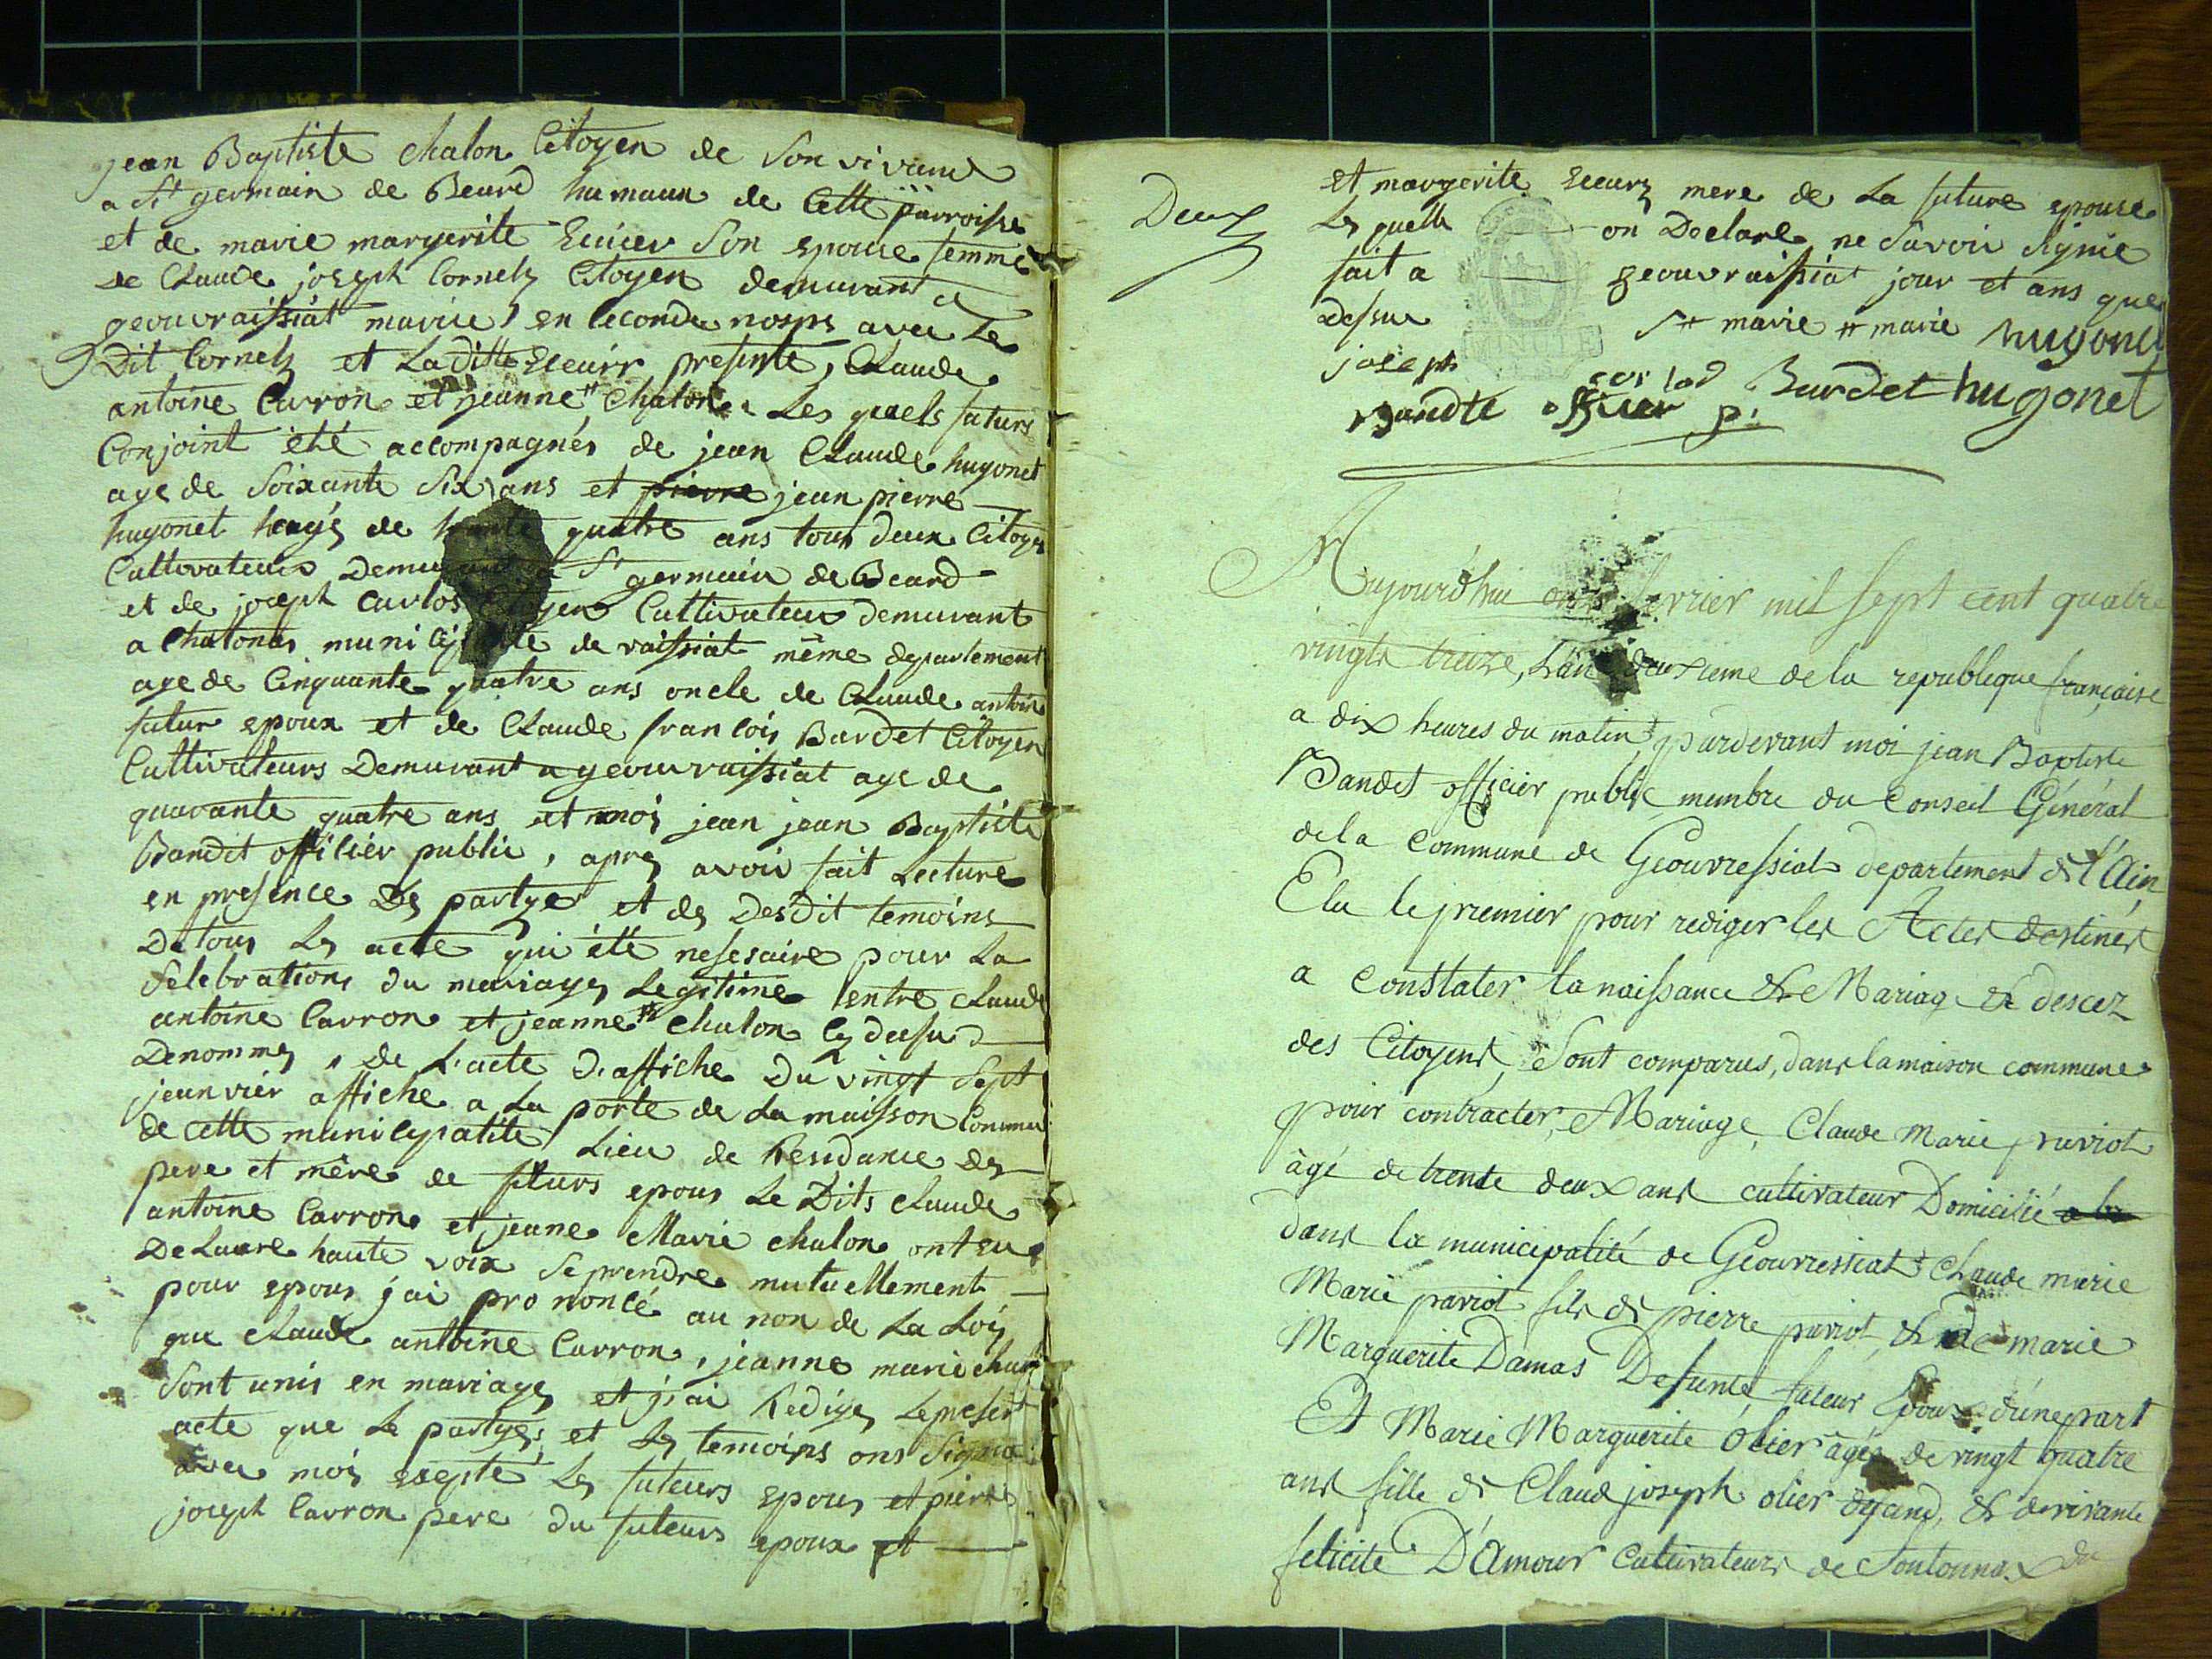 jean Baptiste chalon Citoyen de Son vivant
a St germain de Beard humaux de Cette parroisse
et de marie margerite Son epouse femme
de Claude joseph Cornetz Citoyen demurant a
geouvraissiat mariée en seconde nosps avec Le
Dit Cornetz et Laditte presente, Claude
antoine Carron et jeanne # chalon Les quels futurs
Conjoint été accompagnés de jean Claude hugonet
age de Soixante Six ans et pierre jean pierre
hugonet de trante quatre ans tous deux Citoyen
Cultivateurs Demurant a St germain de Beard
et de joseph Carlos Citoyen Cultivateur demurant
a Chatonas de vaissiat même departement
age de Cinquante quatre ans oncle de Claude antoine
futur epoux et de Claude francois Bardet Citoyen
Cultivateurs Demurant a geouvraissiat age de
quarante quatre ans et moi jean jean Baptiste
Bandet officiér public, apres avoir fait Lecture
en presence Des partyes et des Desdit temoins
De tous Les acte qui été nesesaire pour La
selebrations du mariages Legitime entre claude
antoine Carron et jeanne # chalon cy dessus
Denommes, De L'acte D'affiche Du vingt Sept
jeanvier affiche a La porte de La maisson Commune
de cette municipatité Lieu de Residance des
pere et mère de futurs epous Le Dits claude
antoine Carron et jeane Marie chalon ont eu
De Laure haute voix Se prendre mutuellement
pour epous j'ai prononcé au non de La Loy
que claude antoine Carron, jeanne marie chalon
Sont unis en mariages et j'ai Rediges Le present
acte que Le partyes et Les temoins ons Signe
avec moi exepté Les futeurs epous et pierre
joseph Carron pere du futeurs epoux et
Deux
et margerite mere de La future epouse
Les quelle on Declare ne Savoir Signie
fait a geouvraissiat jour et ans que
Dessus # marie # marie hugonet
joseph Carlod Burdet hugonet
Bandte officier p:
Aujourd'hui onze fevrier mil sept cent quatre
vingts treize, L'an deuxieme de la republeque française
a dix heures du matin pardevant moi jean Baptiste
Bandet officier public membre du Conseil Général
de la Commune de Géouvressiat departement de l'Ain
Elu le premier pour rediger les Actes destinés
a constater la naissance & Mariage & descez
des Citoyens, Sont comparus, dans la maison commune
pour contracter, Mariage, Claude marie pruviot
âgé de trente deux ans cultivateur Domicilié
dans la municipalité de Géouvressiat Claude marie
Marie pariot fils de pierre puriot & de marie
Marguerite Damas Defunte futeur Epoux d'une part
Et Marie Marguerite Olier âgée de vingt quatre
ans fille de Claud joseph olier & de vivante
felicité D'Amour Cultivateurs de Sontonnax du